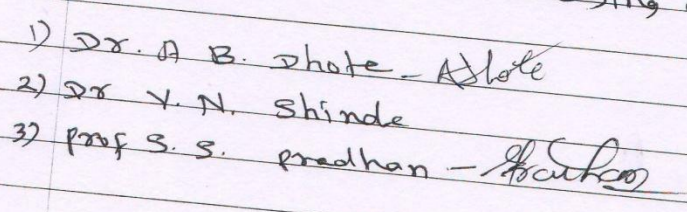 1) Dr. A B. Dhote - ADhote
2) Dr Y. N. Shinde
3) prof S. S. pradhan -